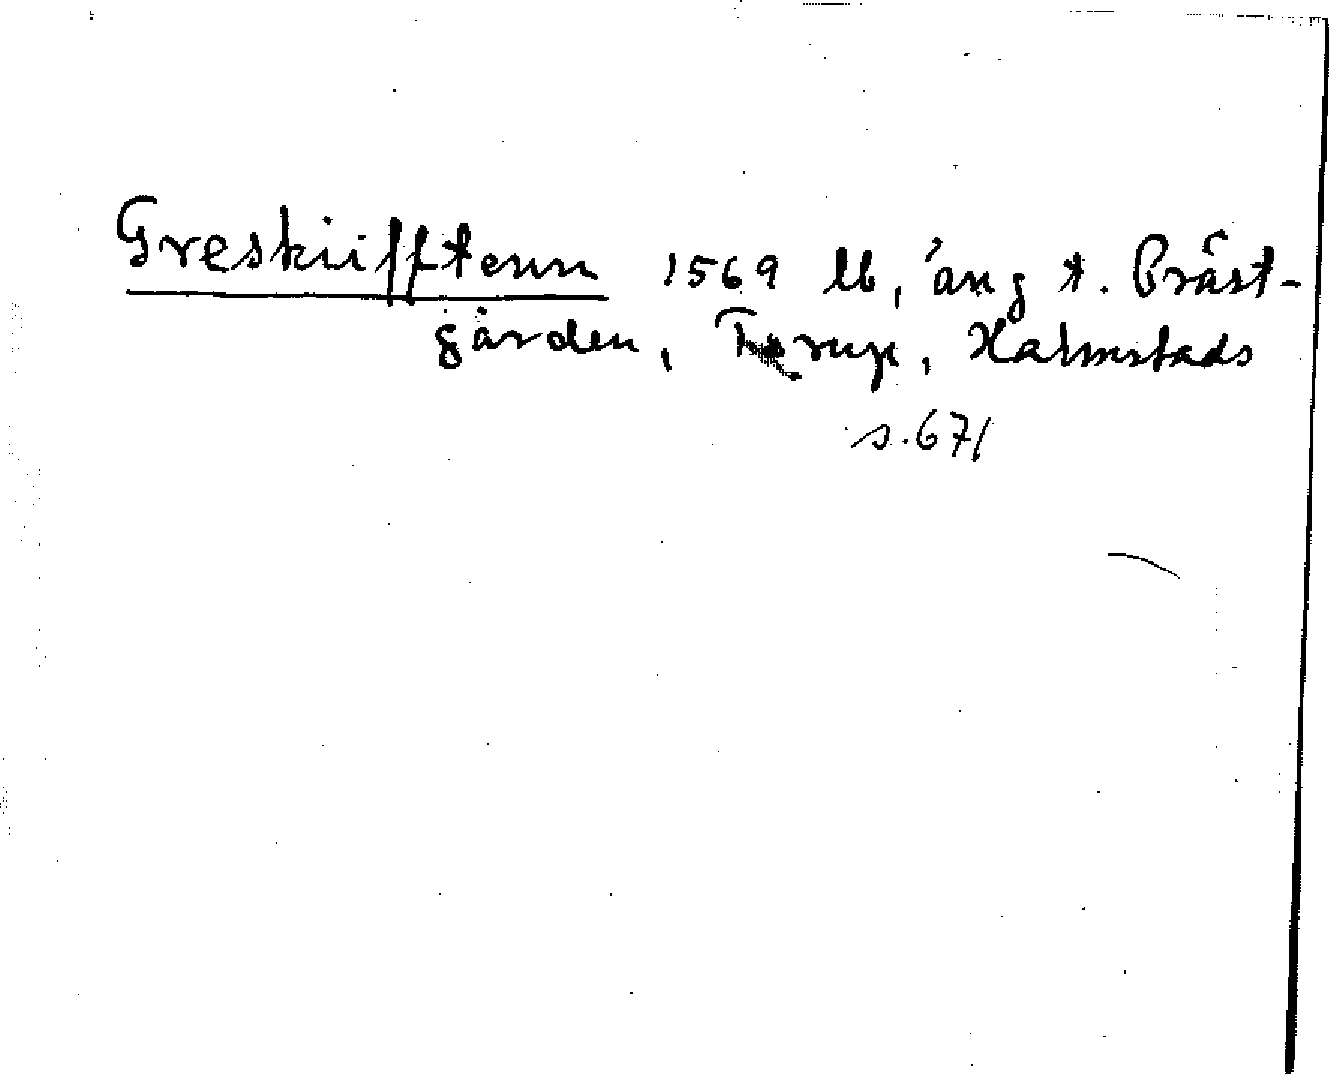 Greskiifftenn 1569 lb, äng t. Präst-
gården, Torup, Halmstads
s. 671